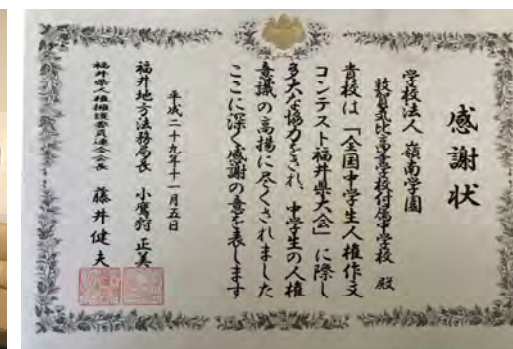 感謝状
学校法人 嶺南学園
敦賀気比高等学校付属中学校 殿
貴校は「全国中学生人権作文
コンテスト福井県大会」に際し
多大な協力をされ、中学生の人権
意識の高揚に尽くされました
ここに深く感謝の意を表します
平成二十九年十一月五日
福井地方法務局長 小鷹狩 正美
福井県人権擁護委員連合会長 藤井 健夫